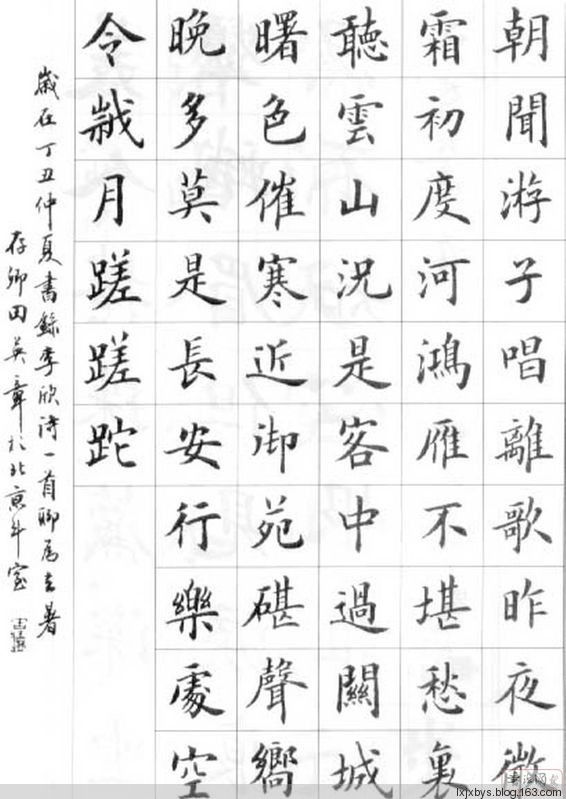 朝聞游子唱離歌昨夜微
霜初度河鴻雁不堪愁裏
聽雲山況是客中過關城
曙色催寒近御苑碪聲嚮
晚多莫是長安行樂處空
令歲月蹉蹉跎
歲在丁丑仲夏書錄李欣詩一首聊為去暑
存卿田英章於北京斗室
lxjxbys.blog.163.com